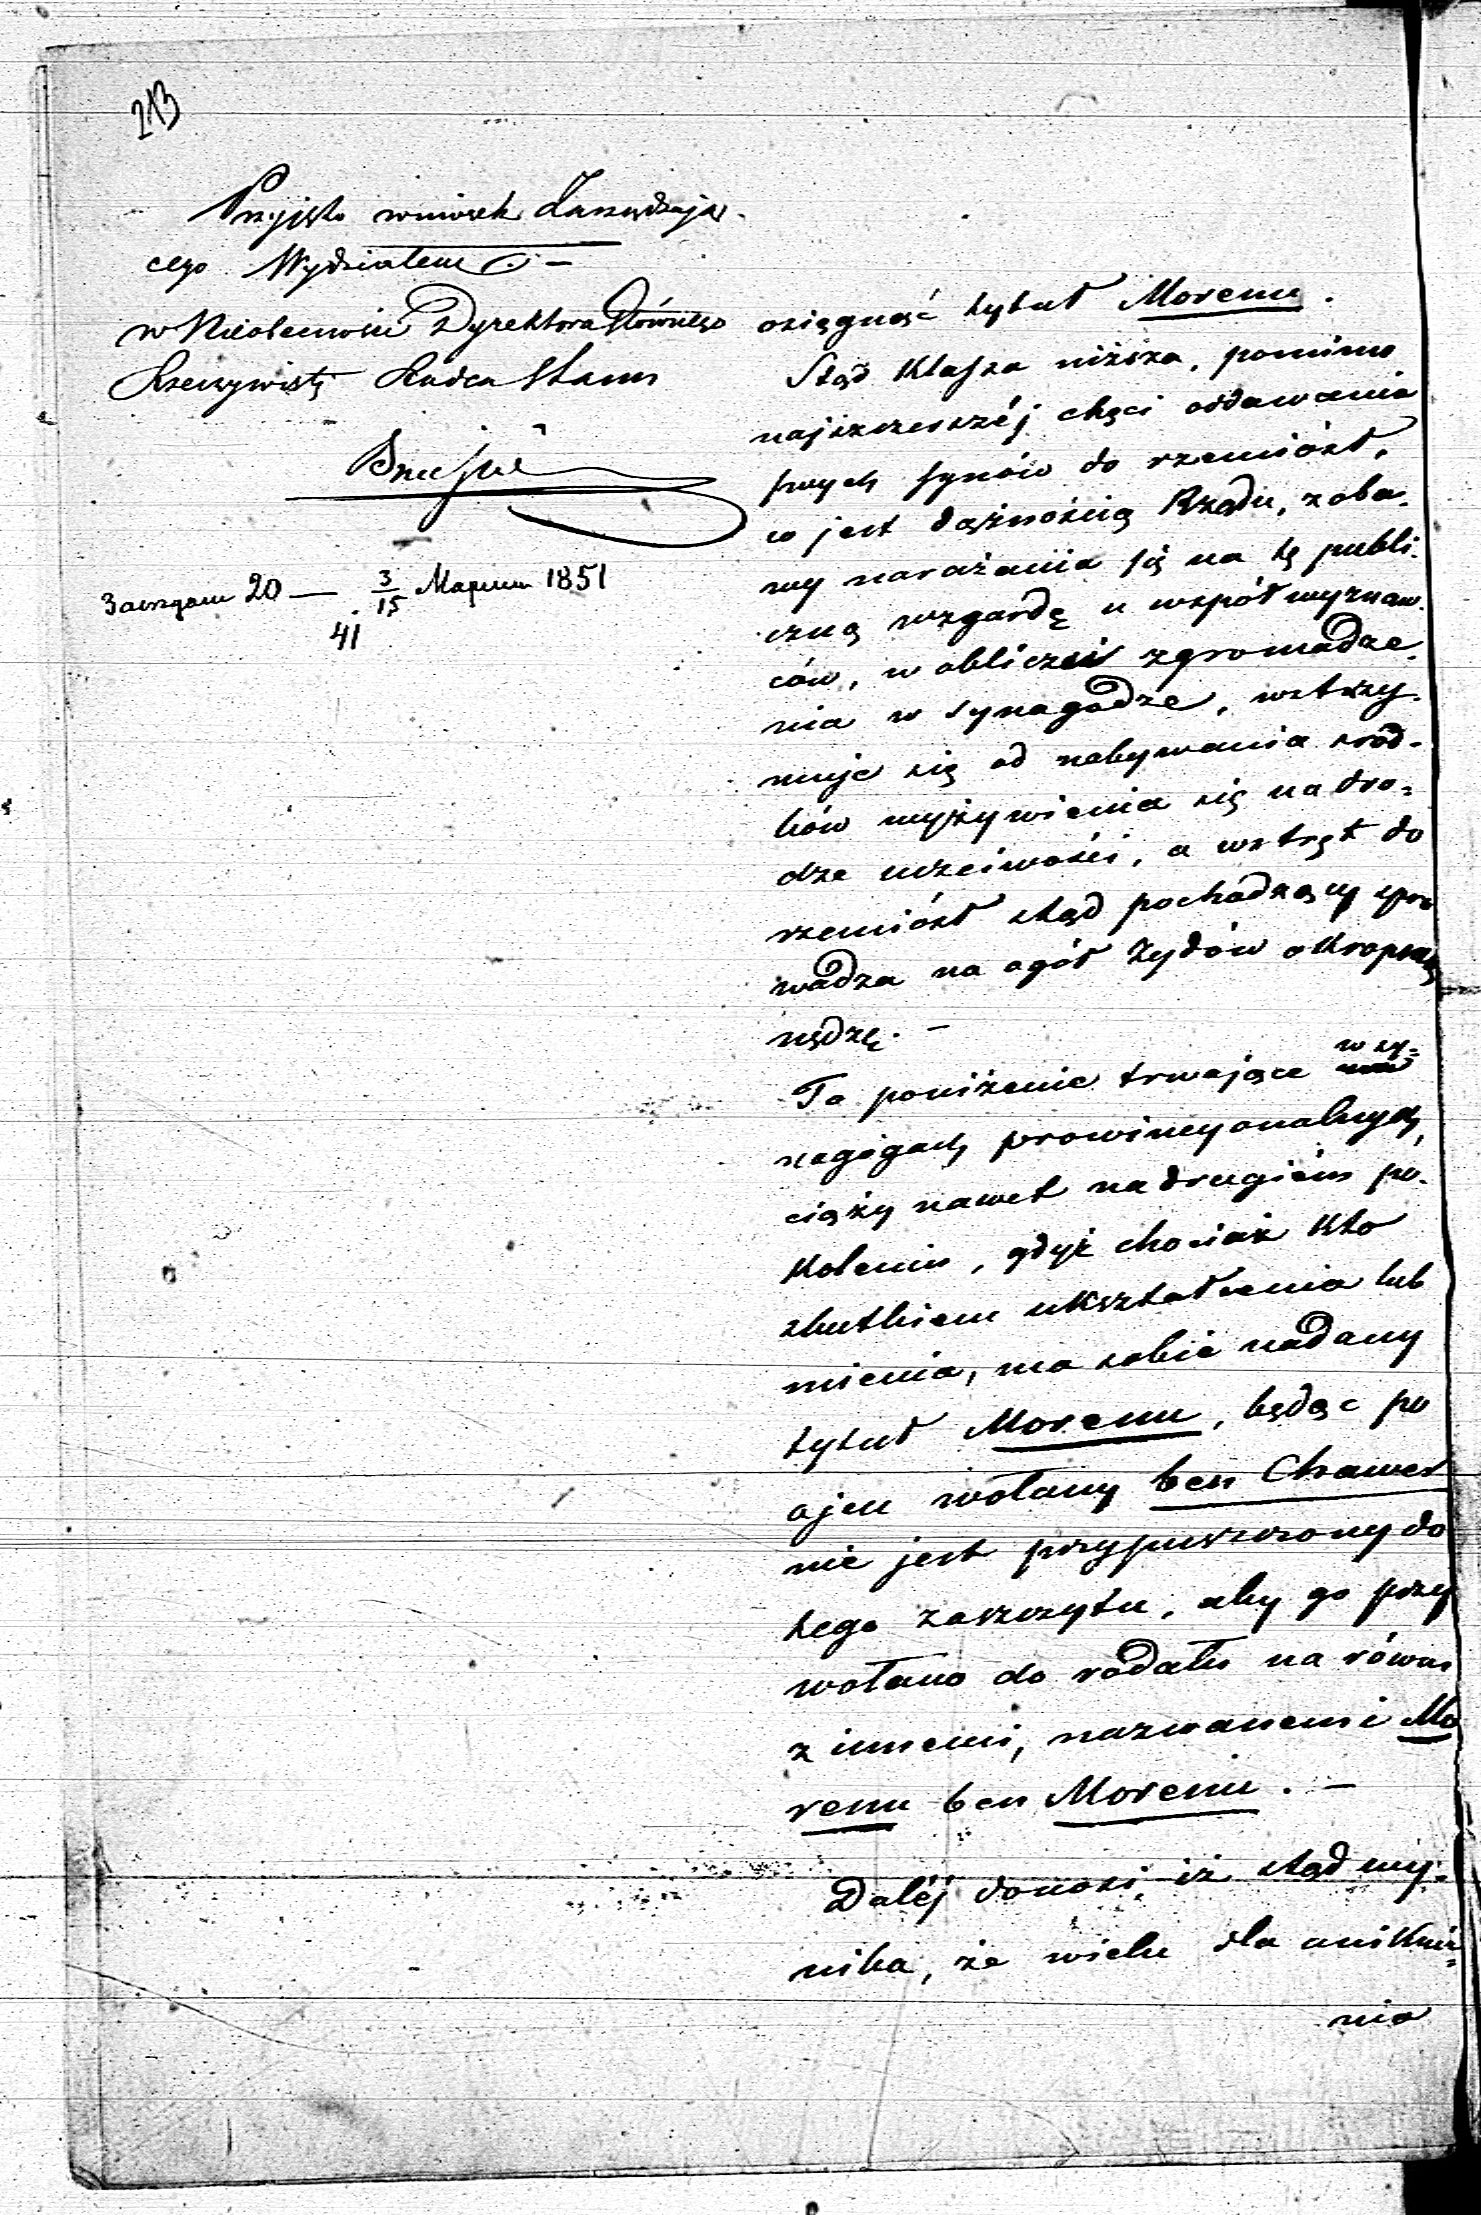 213
Przyjęto wniosek Zarządzają-
cego Wydziałem
w Nieobecności Dyrektora Głównego
Rzeczywisty Radca Stanu
20 — 3/15 Марта 1851
41
osiągnąć tytuł Morenu.
Stąd klassa niższa, pomimo
najszczerszéj chęci oddawania
swych synów do rzemiósł,
co jest dążnością Rządu, z oba-
wy narażania się na tę publi-
czną wzgardę u współwyznaw-
ców, w obliczu zgromadze-
nia w synagodze, wstrzy-
muje się od nabywania śród-
ków wyżywienia się na dro-
dze uczciwości, a wstręt do
rzemiósł stąd pochodzący spro
wadza na ogół Żydów okropną
nędzę. —
To poniżenie trwające w sy-
nagogach prowincyonalnych,
ciąży nawet na drugiém po-
koleniu, gdyż chociaż kto
skutkiem ukształcenia lub
mienia, ma sobie nadany
tytuł Morenu, będąc po
ojcu wołany ben Chawer
nie jest przypuszczony do
tego zaszczytu, aby go przy
wołano do rodału na równi
z innemi, nazwanemi Mo
renu ben Morenu. —
Daléj donosi, iż stąd wy-
nika, że wielu dla uniknie-
nia